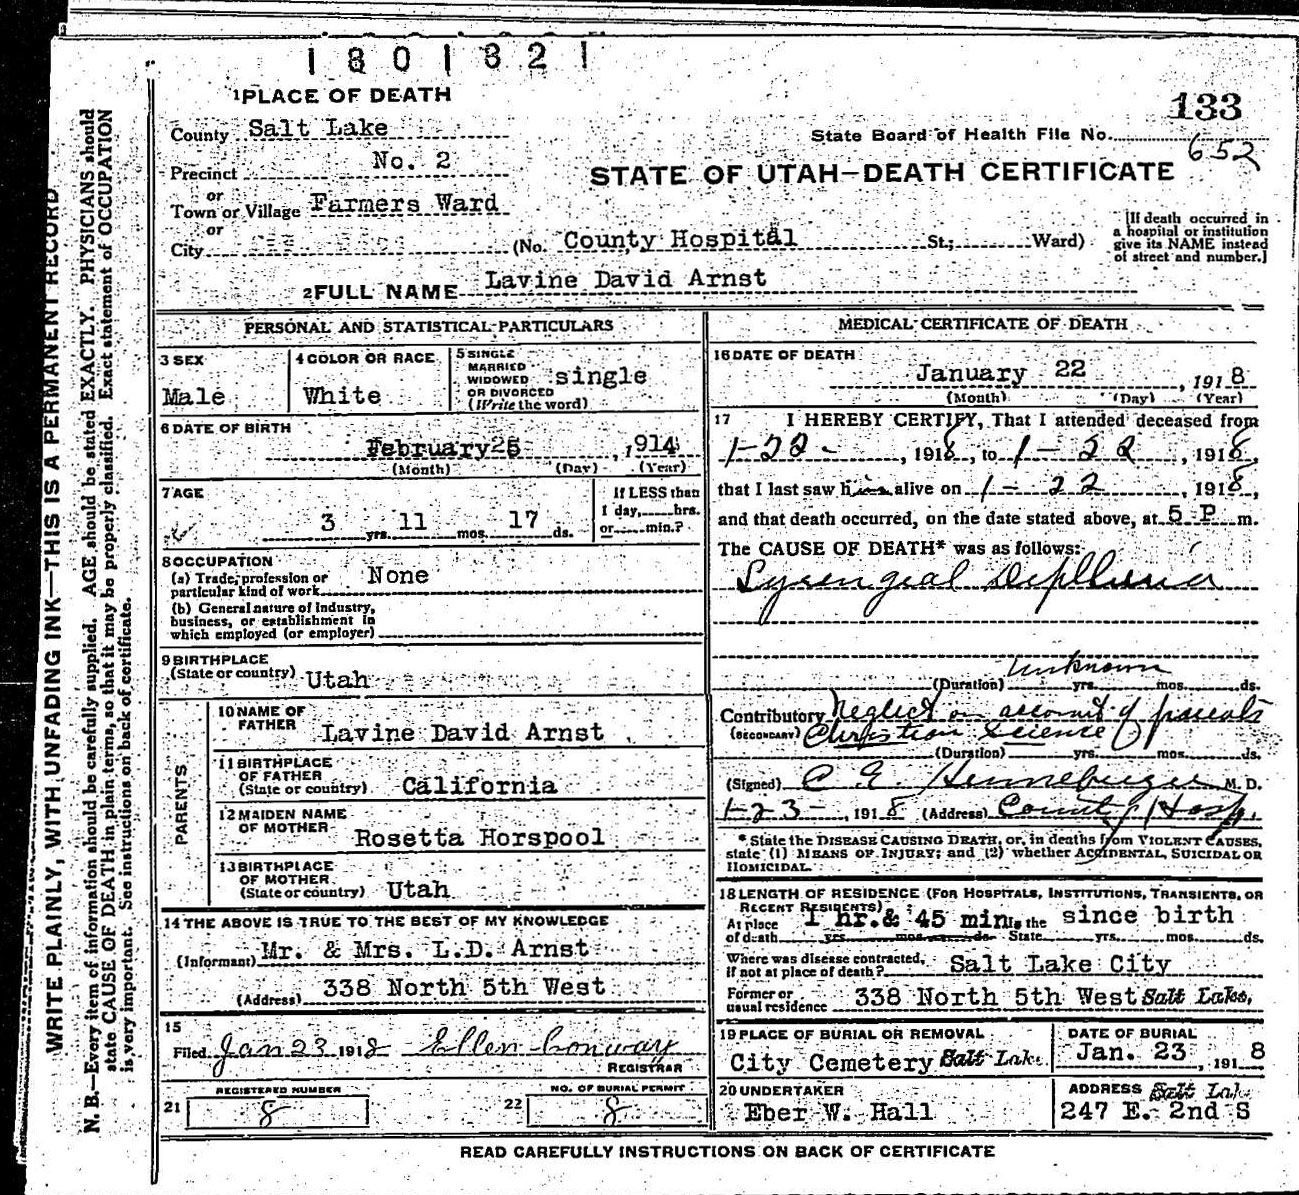 1801821
1 PLACE OF DEATH
133
County Salt Lake
State Board of Health File No.
652
Precinct No. 2
STATE OF UTAH—DEATH CERTIFICATE
or
Town or Village Farmers Ward
or
City (No. County Hospital St.; Ward)
[If death occurred in
a hospital or institution
give its NAME instead
of street and number.]
2 FULL NAME Lavine David Arnst
PERSONAL AND STATISTICAL PARTICULARS
3 SEX
Male
4 COLOR OR RACE
White
5 SINGLE
MARRIED
WIDOWED
OR DIVORCED
(Write the word)
single
6 DATE OF BIRTH
February 25, 1914
(Month) (Day) (Year)
7 AGE
3 yrs. 11 mos. 17 ds.
If LESS than
1 day, hrs.
or min.?
8 OCCUPATION
(a) Trade, profession or
particular kind of work None
(b) General nature of industry,
business, or establishment in
which employed (or employer)
9 BIRTHPLACE
(State or country) Utah
PARENTS
10 NAME OF
FATHER Lavine David Arnst
11 BIRTHPLACE
OF FATHER
(State or country) California
12 MAIDEN NAME
OF MOTHER Rosetta Horspool
13 BIRTHPLACE
OF MOTHER
(State or country) Utah
14 THE ABOVE IS TRUE TO THE BEST OF MY KNOWLEDGE
(Informant) Mr. & Mrs. L.D. Arnst
(Address) 338 North 5th West
15
Filed Jan 23 1918 Ellen Conway
REGISTRAR
REGISTERED NUMBER
21 8
NO. OF BURIAL PERMIT
22 8
MEDICAL CERTIFICATE OF DEATH
16 DATE OF DEATH
January 22, 1918
(Month) (Day) (Year)
17 I HEREBY CERTIFY, That I attended deceased from
1-22-, 1918, to 1-22, 1918,
that I last saw him alive on 1-22, 1918,
and that death occurred, on the date stated above, at 5 P m.
The CAUSE OF DEATH* was as follows:
Lyrengeal Diptheria
Unknown
(Duration) yrs. mos. ds.
Contributory Neglect on account of parents
(SECONDARY) Christian Science
(Duration) yrs. mos. ds.
(Signed) C. E. Henneberger M. D.
1-23-, 1918 (Address) County Hosp.
* State the DISEASE CAUSING DEATH, or, in deaths from VIOLENT CAUSES,
state (1) MEANS OF INJURY; and (2) whether ACCIDENTAL, SUICIDAL OR
HOMICIDAL.
18 LENGTH OF RESIDENCE (FOR HOSPITALS, INSTITUTIONS, TRANSIENTS, OR
RECENT RESIDENTS)
At place
of death 1 hr. & 45 min. yrs. mos. ds. In the State since birth yrs. mos. ds.
Where was disease contracted,
if not at place of death? Salt Lake City
Former or
usual residence 338 North 5th West Salt Lake,
19 PLACE OF BURIAL OR REMOVAL
City Cemetery Salt Lake
DATE OF BURIAL
Jan. 23, 1918
20 UNDERTAKER
Eber W. Hall
ADDRESS Salt Lake
247 E. 2nd S
READ CAREFULLY INSTRUCTIONS ON BACK OF CERTIFICATE
WRITE PLAINLY, WITH UNFADING INK—THIS IS A PERMANENT RECORD
N. B.—Every item of information should be carefully supplied. AGE should be stated EXACTLY. PHYSICIANS should
state CAUSE OF DEATH in plain terms, so that it may be properly classified. Exact statement of OCCUPATION
is very important. See instructions on back of certificate.